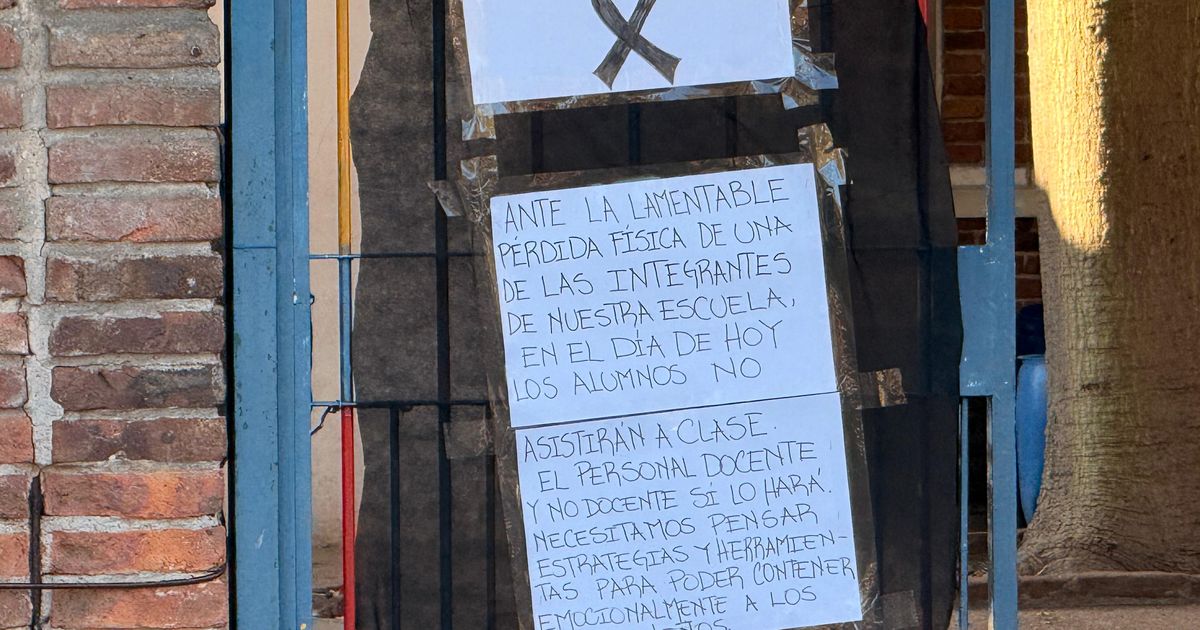 ANTE LA LAMENTABLE
PÉRDIDA FÍSICA DE UNA
DE LAS INTEGRANTES
DE NUESTRA ESCUELA,
EN EL DÍA DE HOY
LOS ALUMNOS NO
ASISTIRÁN A CLASE.
EL PERSONAL DOCENTE
Y NO DOCENTE SÍ LO HARÁ.
NECESITAMOS PENSAR
ESTRATEGIAS Y HERRAMIEN-
TAS PARA PODER CONTENER
EMOCIONALMENTE A LOS